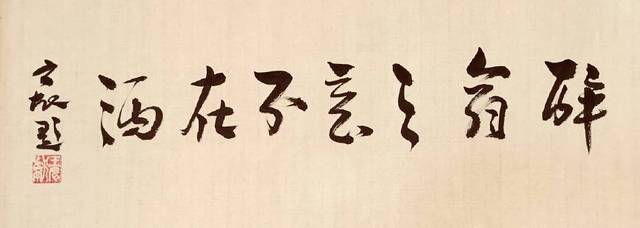 醉翁之意不在酒